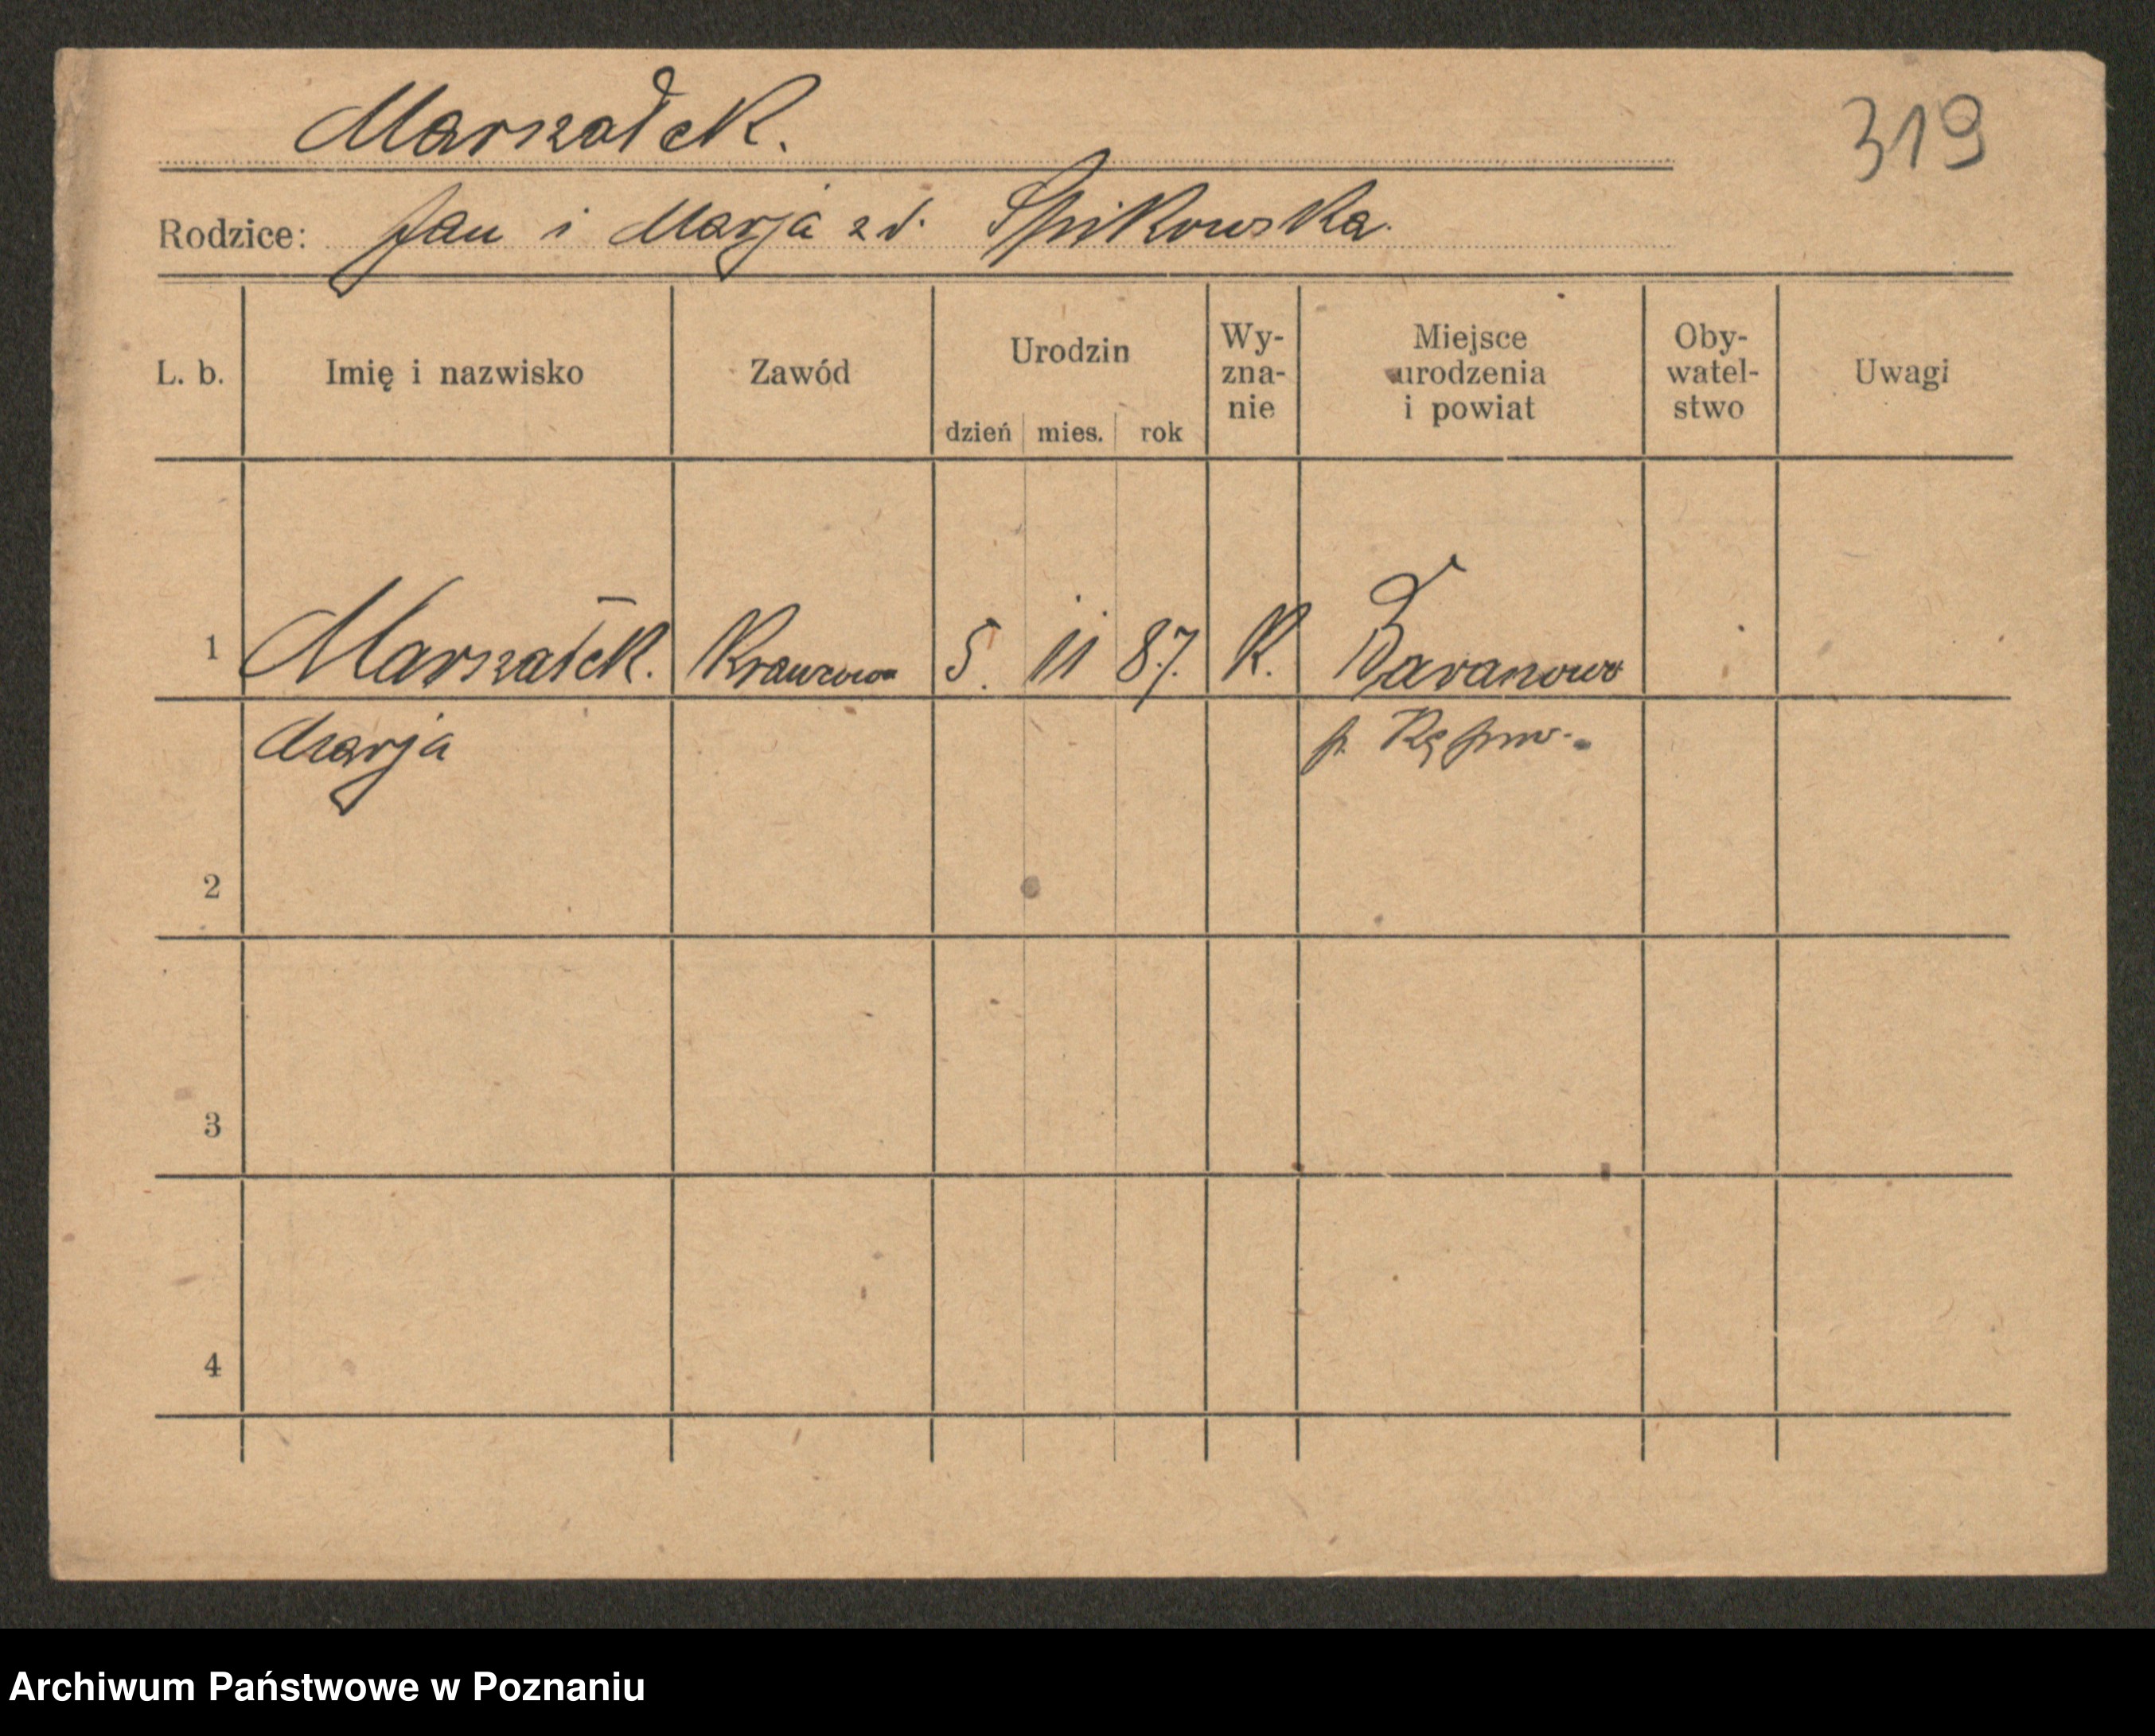 Marszałek.
319
Rodzice: Jan i Marja zd. Spikowska.
L. b. Imię i nazwisko Zawód Urodzin dzień mies. rok Wy-zna-nie Miejsce urodzenia i powiat Oby-watel-stwo Uwagi
1 Marszałek. Krawcowa 5. 11 87. K. Baranowo
Marja p.
2
3
4
Archiwum Państwowe w Poznaniu